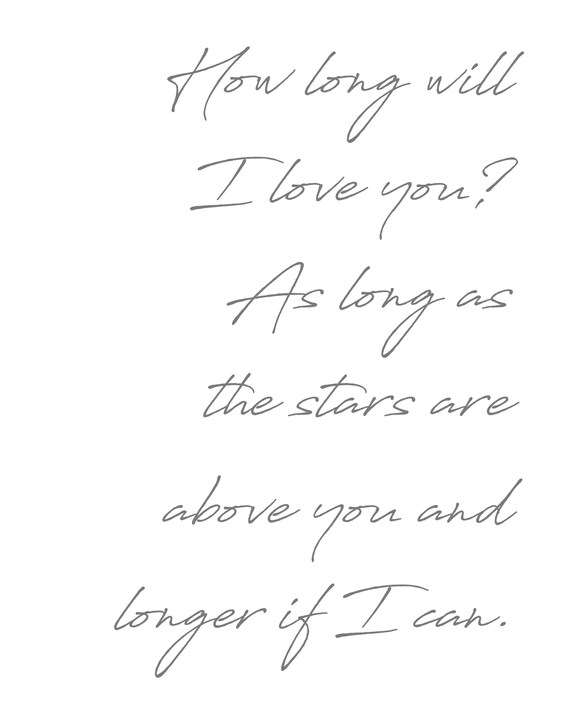 How long will
I love you?
As long as
the stars are
above you and
longer if I can.